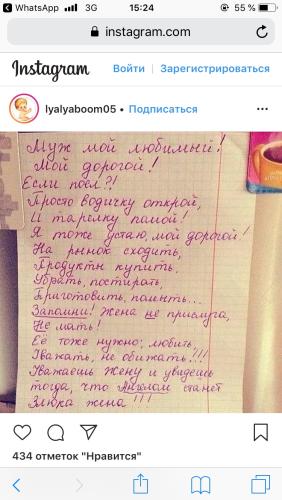 WhatsApp 3G 15:24 55 %
instagram.com
Instagram Войти | Зарегистрироваться
lyalyaboom05 • Подписаться
Муж мой любимый!
Мой дорогой!
Если поел?!
Просто водичку открой,
И тарелку помой!
Я тоже устаю, мой дорогой!
На рынок сходить,
Продукты купить,
Убрать, постирать,
Приготовить, помыть...
Запомни! Жена не прислуга,
Не мать!
Её тоже нужно, любить,
Уважать, не обижать!!!
Уважаешь жену и увидешь
тогда, что Ангелом станет
Злюка жена!!!
434 отметок "Нравится"